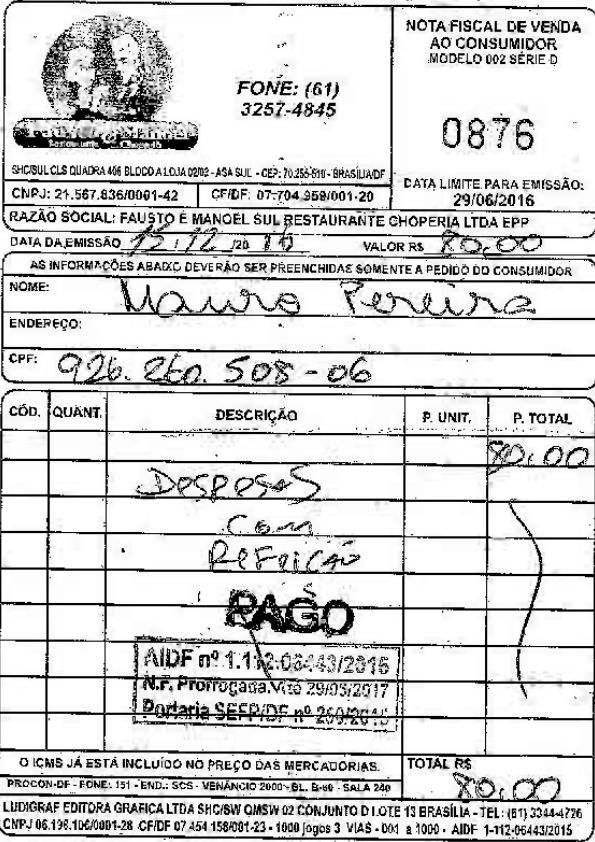 NOTA FISCAL DE VENDA
AO CONSUMIDOR
MODELO 002 SÉRIE D
FONE: (61)
3257-4845
0876
SHC/SUL CLS QUADRA 406 BLOCO A LOJA 02/02 - ASA SUL - CEP: 70.255-510 - BRASÍLIA/DF
DATA LIMITE PARA EMISSÃO:
29/06/2016
CNPJ: 21.567.836/0001-42 CF/DF: 07.704.959/001-20
RAZÃO SOCIAL: FAUSTO E MANOEL SUL RESTAURANTE CHOPERIA LTDA EPP
DATA DA EMISSÃO 15/12/2016 VALOR R$ 80,00
AS INFORMAÇÕES ABAIXO DEVERÃO SER PREENCHIDAS SOMENTE A PEDIDO DO CONSUMIDOR
NOME: Mauro Pereira
ENDEREÇO:
CPF: 926.260.508-06
CÓD. QUANT. DESCRIÇÃO P. UNIT. P. TOTAL
80,00
Despesas
Com
Refeição
PAGO
AIDF nº 1.112.06443/2015
N.F. Prorrogada Até 29/05/2017
Portaria SEFP/DF nº 260/2015
O ICMS JÁ ESTÁ INCLUÍDO NO PREÇO DAS MERCADORIAS. TOTAL R$
80,00
PROCON-DF - FONE: 151 - END.: SCS - VENÂNCIO 2000 - BL. B-60 - SALA 240
LUDIGRAF EDITORA GRAFICA LTDA SHC/SW QMSW 02 CONJUNTO D LOTE 13 BRASÍLIA - TEL: (61) 3344-4726
CNPJ 06.196.106/0001-28 CF/DF 07 454 158/001-23 - 1000 jogos 3 VIAS - 001 a 1000 - AIDF 1-112-06443/2015